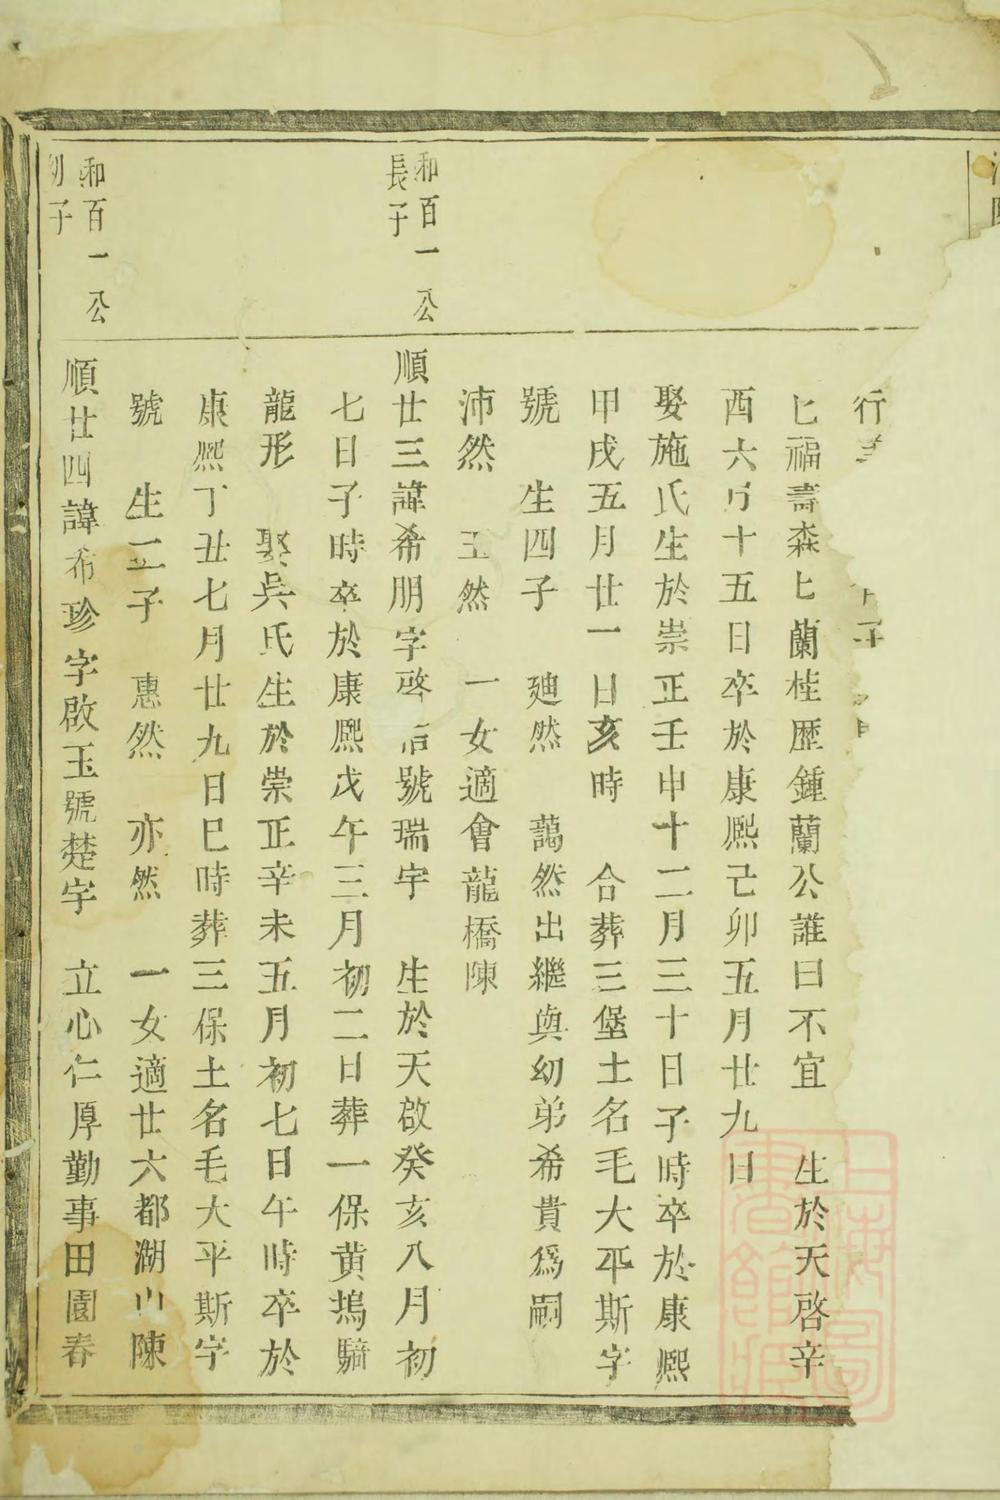 行
匕福壽森匕蘭桂歷鍾蘭公誰曰不宜　生於天啓辛
酉六月十五日卒於康熙己卯五月廿九日
娶施氏生於崇正壬申十二月三十日子時卒於康熙
甲戌五月廿一日亥時　合葬三堡土名毛大平斯字
號　生四子　廸然　藹然出繼與幼弟希貴爲嗣
沛然　玉然　一女適會龍橋陳
和百一公
長子
順廿三諱希朋字啓　號瑞宇　生於天啟癸亥八月初
七日子時卒於康熙戊午三月初二日葬一保黄塢騎
龍形　娶吳氏生於崇正辛未五月初七日午時卒於
康熙丁丑七月廿九日巳時葬三保土名毛大平斯字
號　生二子　惠然　亦然　一女適廿六都湖山陳
和百一公
幼子
順廿四諱希珍字啟玉號楚宇　立心仁厚勤事田園春
上海圖書館藏